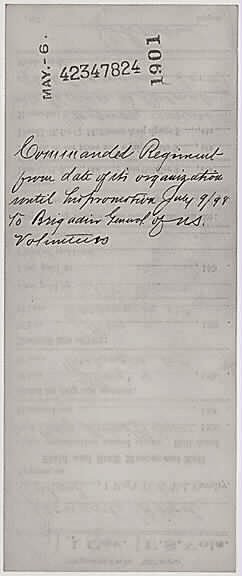 MAY.-6. 42347824 1901
Commanded Regiment
from date of its organization
until his promotion July 9/98
To Brigadier General of U.S.
Volunteers